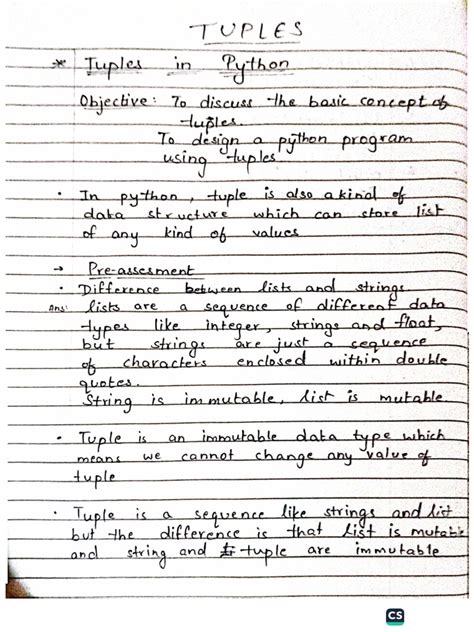 TUPLES
* Tuples in Python
Objective: To discuss the basic concept of
tuples.
To design a python program
using tuples
• In python, tuple is also a kind of
data structure which can store list
of any kind of values
→ Pre-assesment
• Difference between lists and strings.
Ans: lists are a sequence of different data
types like integer, strings and float,
but strings are just a sequence
of characters enclosed within double
quotes.
String is immutable, list is mutable.
• Tuple is an immutable data type which
means we cannot change any value of
tuple
• Tuple is a sequence like strings and list
but the difference is that list is mutable
and string and tuple are immutable
CS